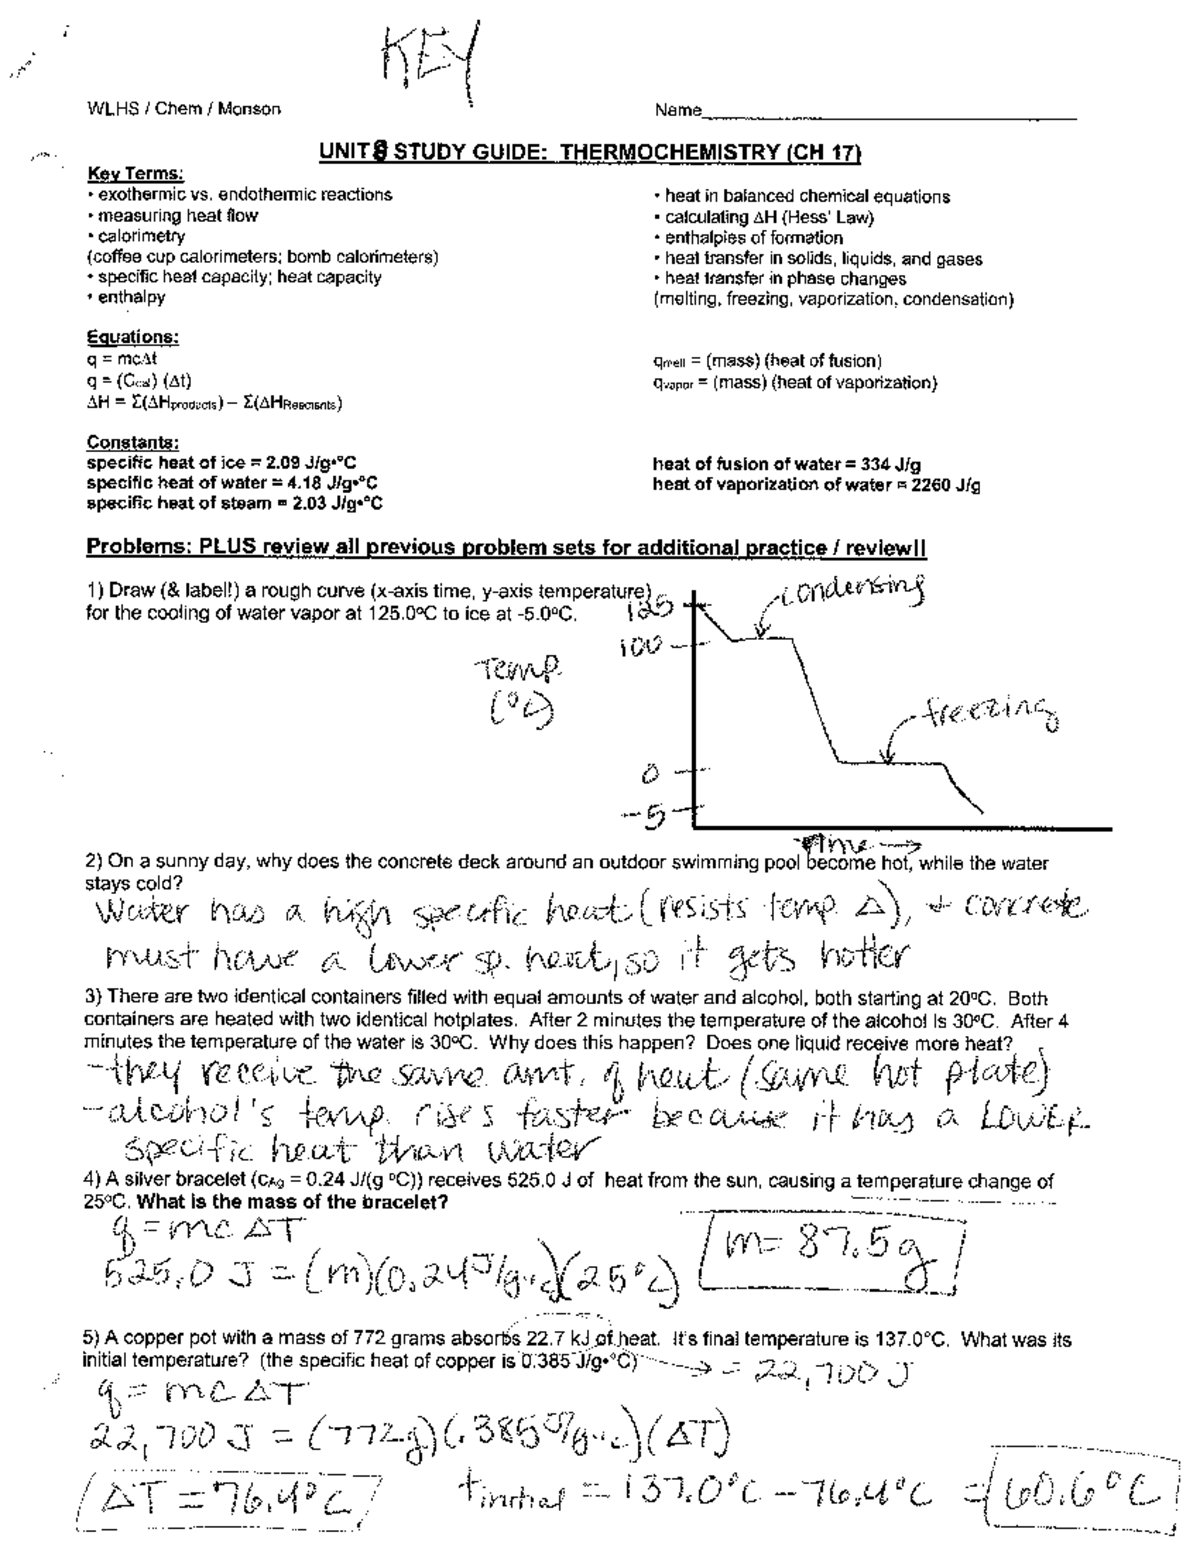 KEY
WLHS / Chem / Monson
Name
UNIT 8 STUDY GUIDE: THERMOCHEMISTRY (CH 17)
Key Terms:
• exothermic vs. endothermic reactions
• measuring heat flow
• calorimetry
(coffee cup calorimeters; bomb calorimeters)
• specific heat capacity; heat capacity
• enthalpy
• heat in balanced chemical equations
• calculating ΔH (Hess' Law)
• enthalpies of formation
• heat transfer in solids, liquids, and gases
• heat transfer in phase changes
(melting, freezing, vaporization, condensation)
Equations:
q = mcΔt
q = (Ccal) (Δt)
ΔH = Σ(ΔHproducts) – Σ(ΔHReactants)
qmelt = (mass) (heat of fusion)
qvapor = (mass) (heat of vaporization)
Constants:
specific heat of ice = 2.09 J/g•°C
specific heat of water = 4.18 J/g•°C
specific heat of steam = 2.03 J/g•°C
heat of fusion of water = 334 J/g
heat of vaporization of water = 2260 J/g
Problems: PLUS review all previous problem sets for additional practice / review!!
1) Draw (& label!) a rough curve (x-axis time, y-axis temperature)
for the cooling of water vapor at 125.0°C to ice at -5.0°C.
125
condensing
100
Temp.
(°C)
freezing
0
-5
time →
2) On a sunny day, why does the concrete deck around an outdoor swimming pool become hot, while the water
stays cold?
Water has a high specific heat (resists temp. Δ), + concrete
must have a lower sp. heat, so it gets hotter
3) There are two identical containers filled with equal amounts of water and alcohol, both starting at 20°C. Both
containers are heated with two identical hotplates. After 2 minutes the temperature of the alcohol is 30°C. After 4
minutes the temperature of the water is 30°C. Why does this happen? Does one liquid receive more heat?
-they receive the same amt. of heat (same hot plate)
-alcohol's temp. rises faster because it has a LOWER
specific heat than water
4) A silver bracelet (cAg = 0.24 J/(g °C)) receives 525.0 J of heat from the sun, causing a temperature change of
25°C. What is the mass of the bracelet?
q = mcΔT
525.0 J = (m)(0.24 J/g·°C)(25°C)
m = 87.5g
5) A copper pot with a mass of 772 grams absorbs 22.7 kJ of heat. It's final temperature is 137.0°C. What was its
initial temperature? (the specific heat of copper is 0.385 J/g•°C)
→ = 22,700 J
q = mcΔT
22,700 J = (772g)(.385 J/g·°C)(ΔT)
ΔT = 76.4°C
tinitial = 137.0°C - 76.4°C = 60.6°C